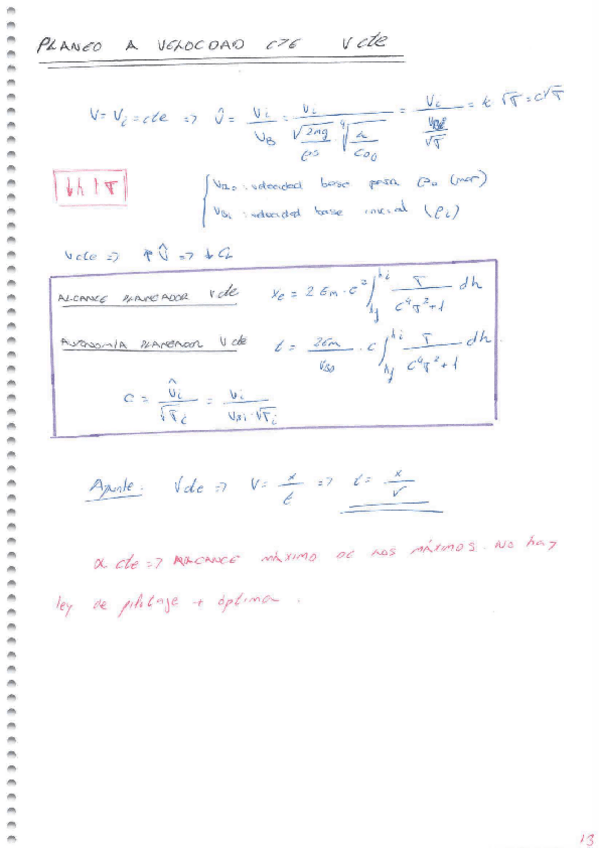 PLANEO A VELOCDAD CTE V cte
V = Vi = cte => V̂ = Vi / VB = Vi / (√(2mg / ρS) ⁴√(a / CD0)) = Vi / (VB0 / √σ) = k √σ = C√σ
↓h ↑σ
VB0 : velocidad base para ρ0 (mar)
VBi : velocidad base inicial (ρi)
V cte => ↑ V̂ => ↓ CL
ALCANCE PLANEADOR V cte xe = 2 Em · c² ∫ σ / (c⁴σ² + 1) dh
AUTONOMÍA PLANEADOR V cte t = 2Em / VB0 · c ∫ σ / (c⁴σ² + 1) dh
c = V̂i / √σi = Vi / (VBi · √σi)
Apunte: V cte => V = x / t => t = x / V
α cte => ALCANCE MÁXIMO DE LOS MÁXIMOS. No hay
ley de pilotaje + óptima.
13